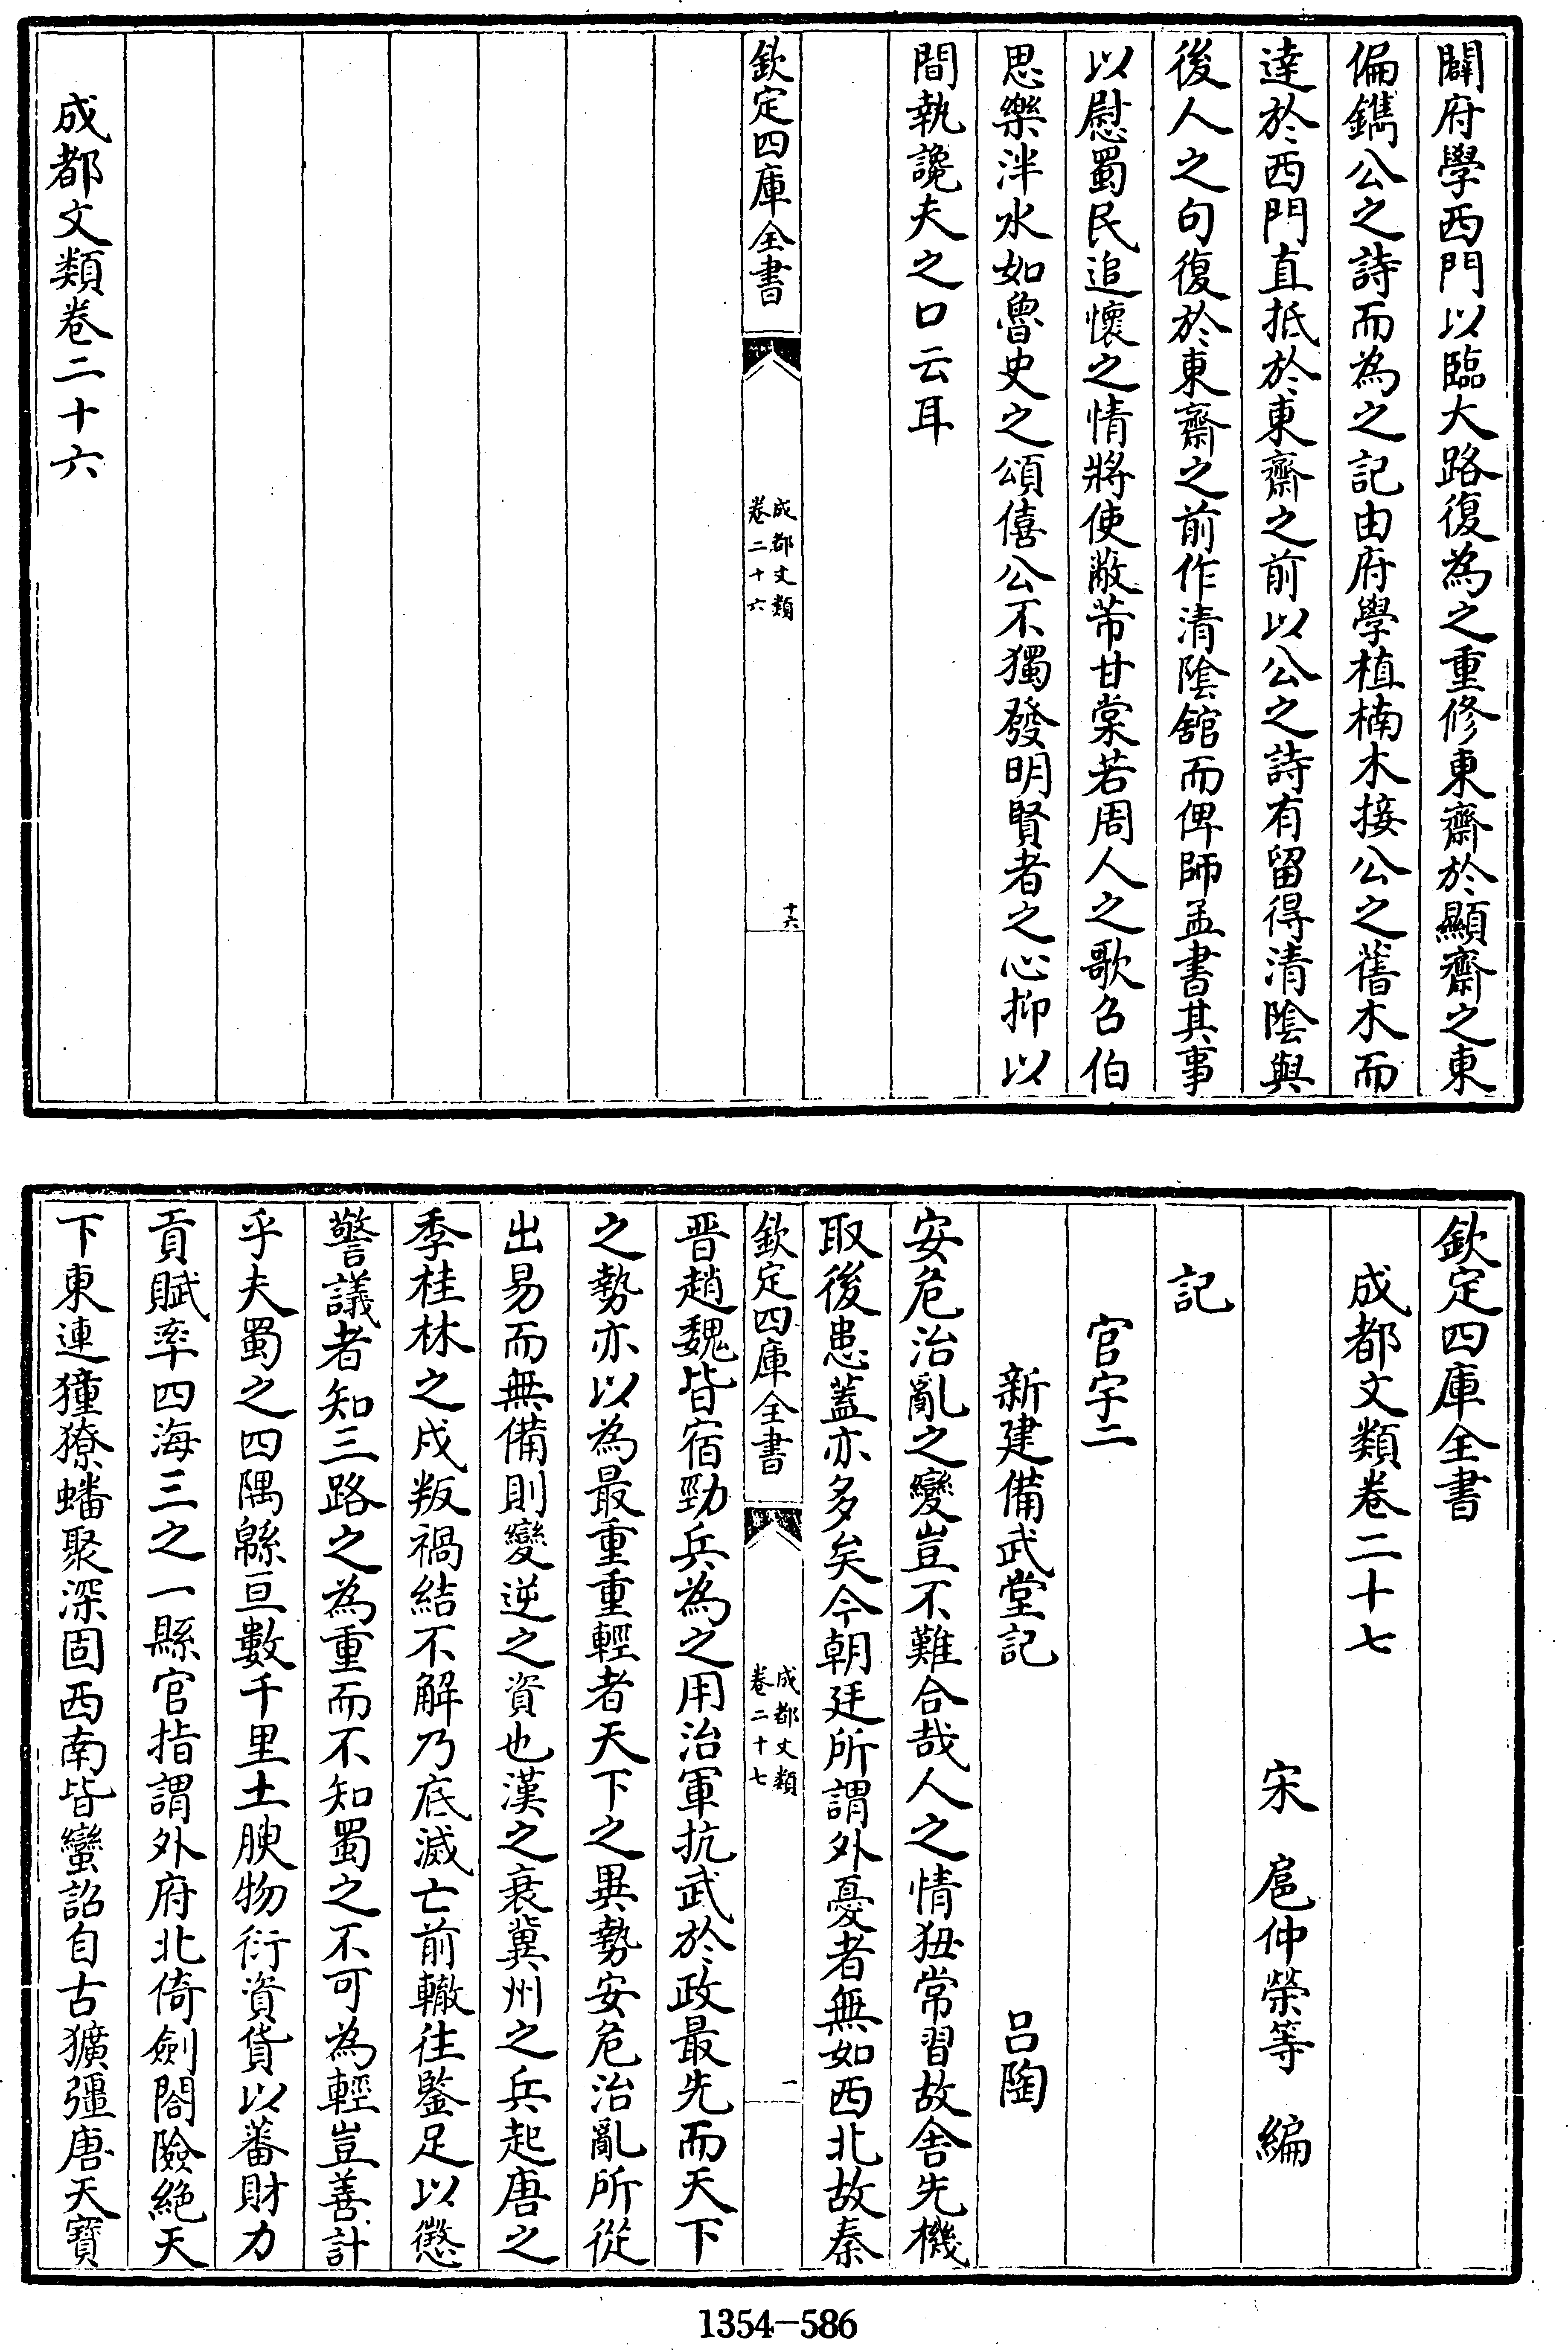 闢府學西門以臨大路復為之重修東齋於顯齋之東
偏鐫公之詩而為之記由府學植楠木接公之舊木而
達於西門直抵於東齋之前以公之詩有留得清隂與
後人之句復於東齋之前作清隂舘而俾師孟書其事
以慰蜀民追懷之情將使敝芾甘棠若周人之歌召伯
思樂泮水如魯史之頌僖公不獨發明賢者之心抑以
間執讒夫之口云耳
欽定四庫全書
成都文類
卷二十六
十六
成都文類卷二十六
欽定四庫全書
成都文類卷二十七
宋 扈仲榮等 編
記
官宇二
新建備武堂記 呂陶
安危治亂之變豈不難合哉人之情狃常習故舍先機
取後患蓋亦多矣今朝廷所謂外憂者無如西北故秦
欽定四庫全書
成都文類
卷二十七
一
晋趙魏皆宿勁兵為之用治軍抗武於政最先而天下
之勢亦以為最重重輕者天下之異勢安危治亂所從
出易而無備則變逆之資也漢之衰冀州之兵起唐之
季桂林之戍叛禍結不解乃底滅亡前轍往鍳足以懲
警議者知三路之為重而不知蜀之不可為輕豈善計
乎夫蜀之四隅緜亘數千里土腴物衍資貨以蕃財力
貢賦率四海三之一縣官指謂外府北倚劍閣險絶天
下東連獞獠蟠聚深固西南皆蠻詔自古獷彊唐天寳
1354-586